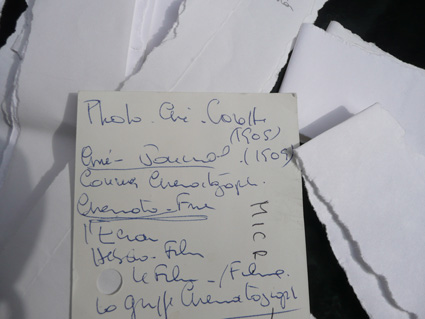 Photo. Ciné. Gazette
(1905)
Ciné-Journal. (1908)
Courrier Cinématograph.
l'Ecran
Hebdo-Film
le Film - / Films.
La griffe Cinématograph
MICR